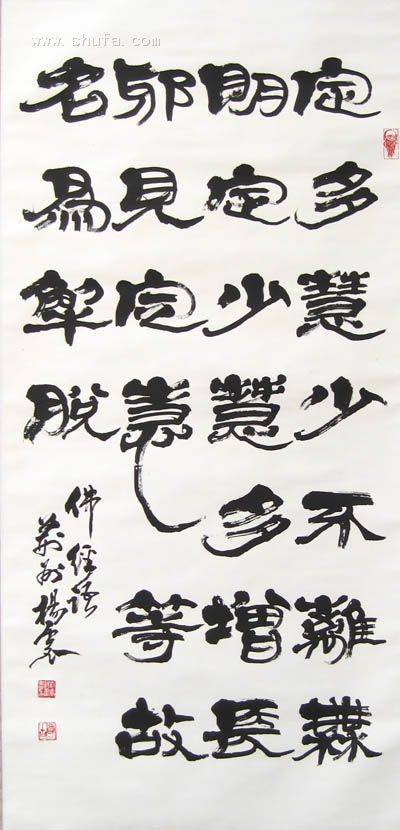 www.shufa.com
定多慧少不離無
明定少慧多增長
邪見定慧等故
名為解脫
佛經語
荊州楊